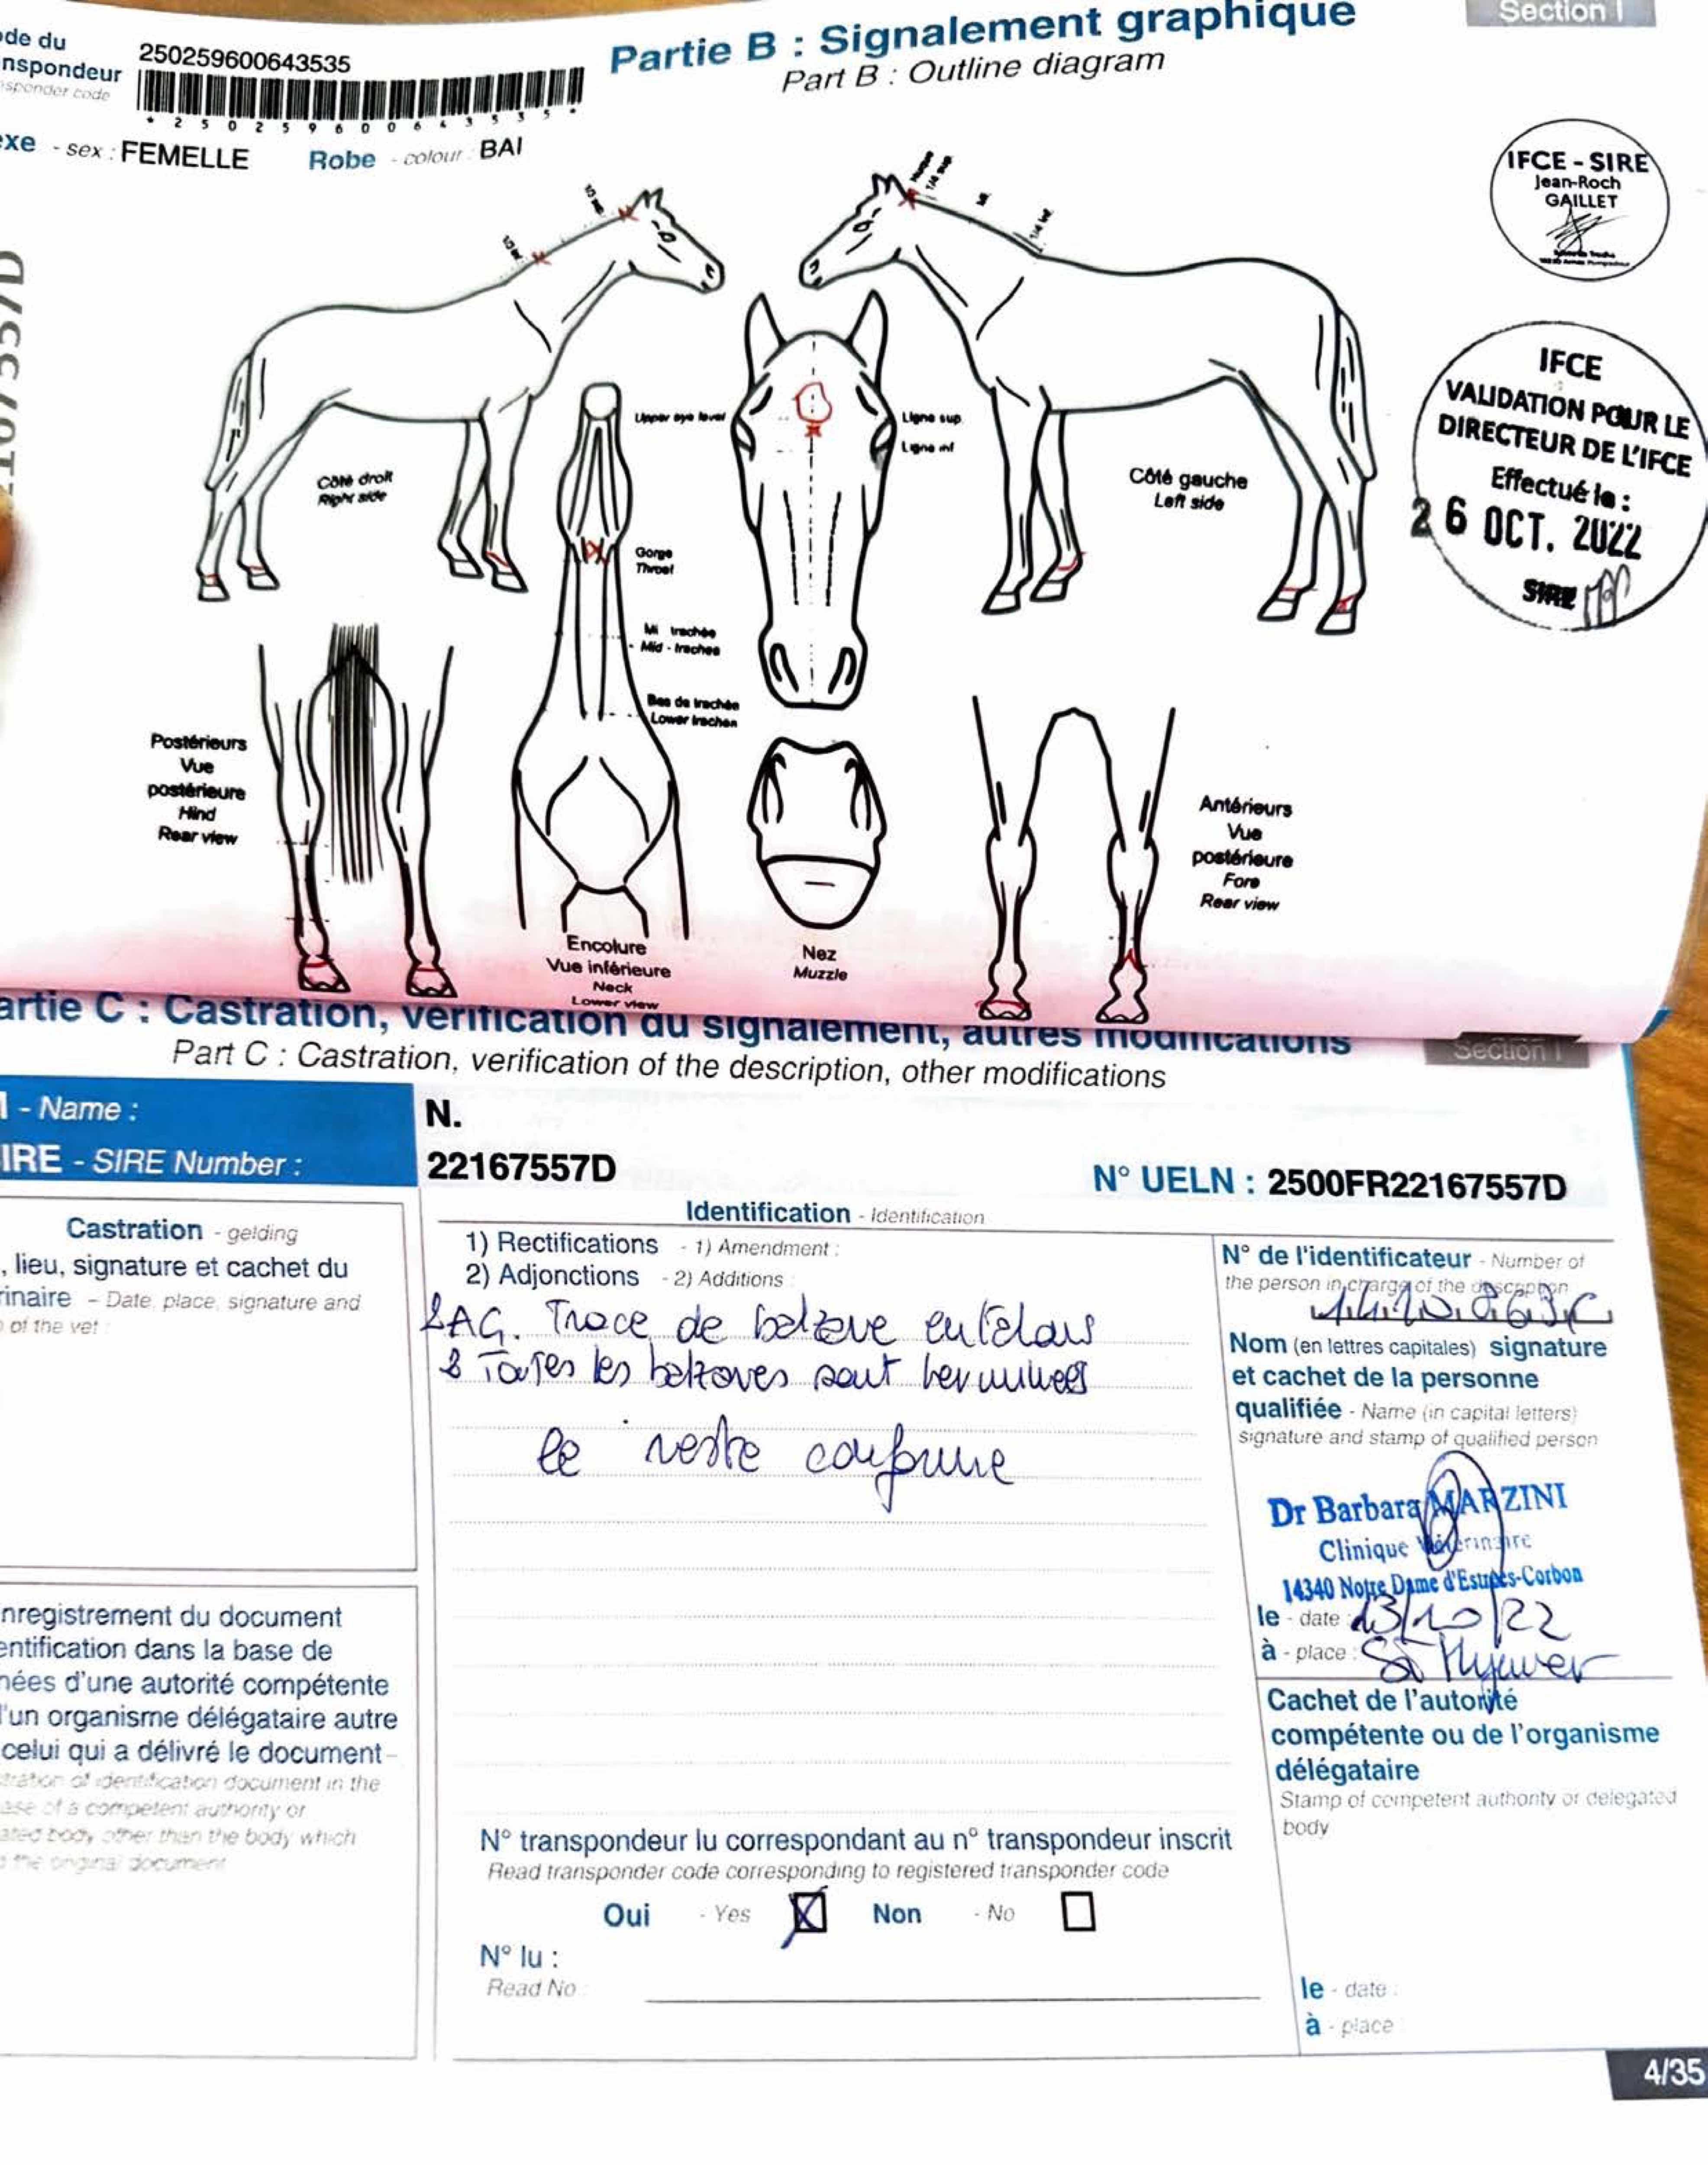 Section I
Partie B : Signalement graphique
Part B : Outline diagram
de du
nspondeur
sponder code
250259600643535
* 2 5 0 2 5 9 6 0 0 6 4 3 5 3 5 *
exe - sex : FEMELLE Robe - colour : BAI
IFCE - SIRE
Jean-Roch
GAILLET
IFCE
VALIDATION POUR LE
DIRECTEUR DE L'IFCE
Effectué le :
26 OCT. 2022
SIRE
Nuque
1/4 sup
1/4 inf
Upper eye level
Ligne sup
Ligne inf
Côté droit
Right side
Côté gauche
Left side
Gorge
Throat
Mi trachée
Mid - trachea
Bas de trachée
Lower trachea
Postérieurs
Vue
postérieure
Hind
Rear view
Antérieurs
Vue
postérieure
Fore
Rear view
Encolure
Vue inférieure
Neck
Lower view
Nez
Muzzle
artie C : Castration, vérification du signalement, autres modifications
Part C : Castration, verification of the description, other modifications
Section I
- Name :
N.
IRE - SIRE Number :
22167557D
N° UELN : 2500FR22167557D
Castration - gelding
, lieu, signature et cachet du
rinaire - Date, place, signature and
of the vet :
Identification - Identification
1) Rectifications - 1) Amendment :
2) Adjonctions - 2) Additions :
Trace de balzane en talons
Toutes les balzanes sont herminées
le reste conforme
N° de l'identificateur - Number of
the person in charge of the description
Nom (en lettres capitales) signature
et cachet de la personne
qualifiée - Name (in capital letters)
signature and stamp of qualified person
Dr Barbara MARZINI
Clinique Vétérinaire
14340 Notre Dame d'Estrées-Corbon
le - date : 13/10/22
à - place :
Cachet de l'autorité
compétente ou de l'organisme
délégataire
Stamp of competent authority or delegated
body
nregistrement du document
entification dans la base de
nées d'une autorité compétente
'un organisme délégataire autre
celui qui a délivré le document -
tration of identification document in the
ase of a competent authority or
ated body other than the body which
the original document
N° transpondeur lu correspondant au n° transpondeur inscrit
Read transponder code corresponding to registered transponder code
Oui - Yes Non - No
N° lu :
Read No :
le - date :
à - place :
4/35